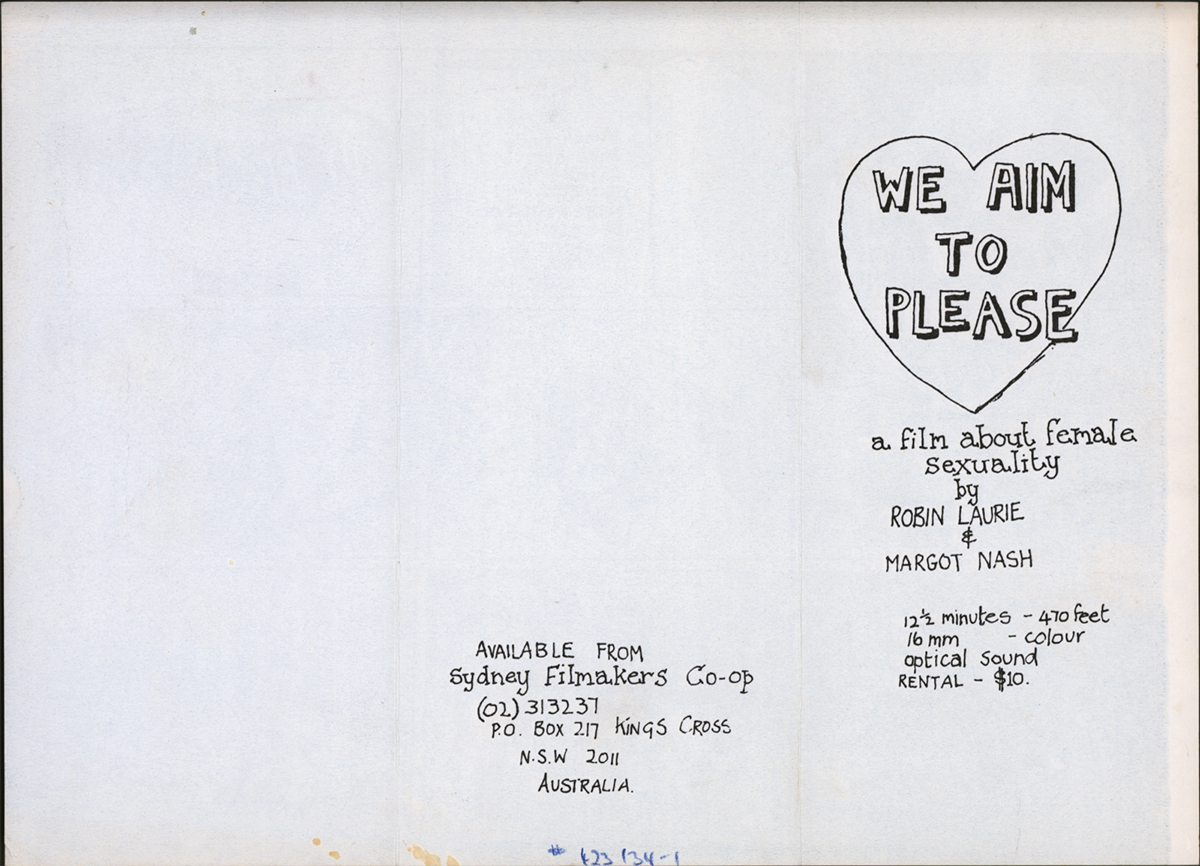 WE AIM
TO
PLEASE
a film about female
sexuality
by
ROBIN LAURIE
&
MARGOT NASH
12½ minutes - 470 feet
16 mm - colour
optical sound
RENTAL - $10.
AVAILABLE FROM
Sydney Filmakers Co-op
(02) 313237
P.O. BOX 217 KINGS CROSS
N.S.W 2011
AUSTRALIA.